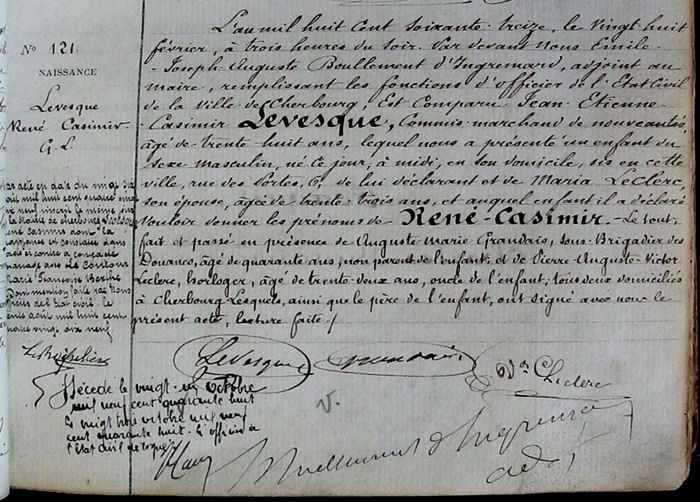 N° 121.
NAISSANCE
Levesque
René Casimir.
G. L.
L'an mil huit cent soixante-treize, le vingt huit
février, à trois heures du soir. Par devant Nous Emile-
Joseph Auguste Boullement d'Ingremard, adjoint au
maire, remplissant les fonctions d'officier de l'Etat Civil
de la Ville de Cherbourg, Est Comparu Jean Etienne
Casimir Levesque, Commis-marchand de nouveautés,
âgé de trente huit ans, lequel nous a présenté un enfant du
sexe masculin, né ce jour, à midi, en son domicile, sis en cette
ville, rue des Portes, 6, de lui déclarant et de Maria Leclerc,
son épouse, âgée de trente-trois ans, et auquel enfant il a déclaré
vouloir donner les prénoms de René-Casimir. Le tout
fait et passé en présence de Auguste Marie Grandais, sous-Brigadier des
Douanes, âgé de quarante ans, non parent de l'enfant, et de Pierre-Auguste-Victor
Leclerc, horloger, âgé de trente-deux ans, oncle de l'enfant, tous deux domiciliés
à Cherbourg. Lesquels, ainsi que le père de l'enfant, ont signé avec nous le
présent acte, lecture faite.
Par acte en date du vingt
août mil huit cent quatre vingt
neuf inscrit le même jour
Marie Françoise Berthe
août mil huit cent
quatre vingt dix neuf
Levesque
Vor Leclerc
Décédé le vingt-un octobre
mil neuf cent quarante huit
Le vingt trois octobre mil neuf
cent quarante huit. L'officier de
l'état civil délégué
V.
Boullement d'Ingremard
adjt